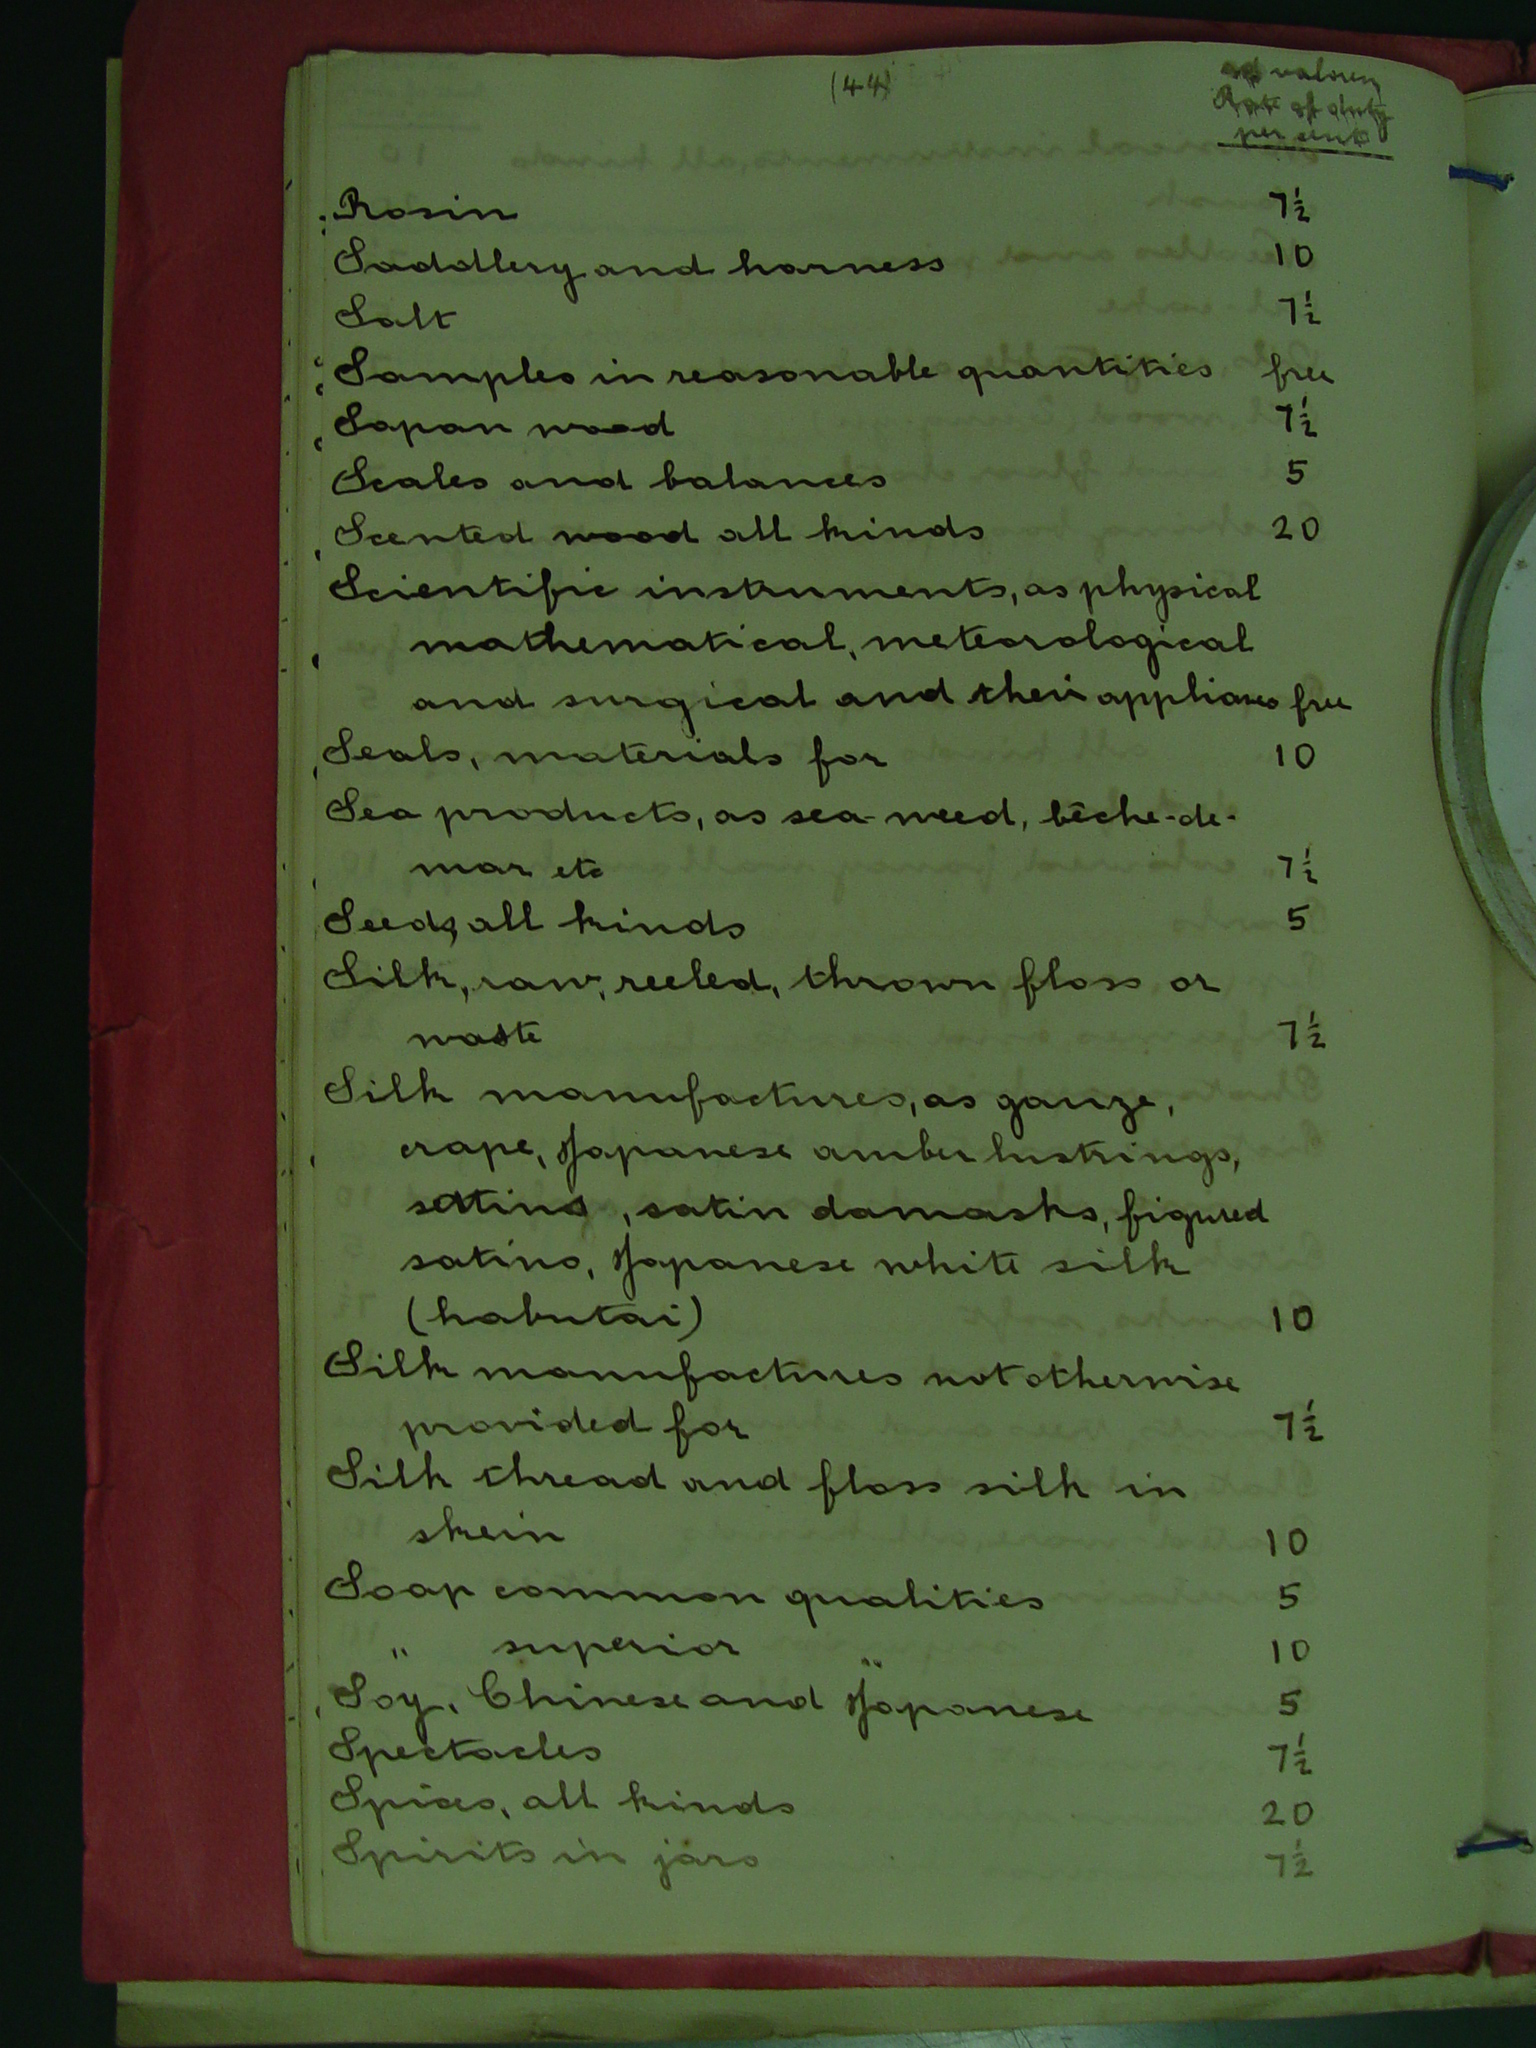 (44)
ad valorem
Rate of duty
per cent
Rosin 7½
Saddlery and harness 10
Salt 7½
Samples in reasonable quantities free
Sapan wood 7½
Scales and balances 5
Scented wood all kinds 20
Scientific instruments, as physical
mathematical, meteorological
and surgical and their appliances free
Seals, materials for 10
Sea products, as sea-weed, bêche-de-
mar etc 7½
Seeds, all kinds 5
Silk, raw, reeled, thrown floss or
waste 7½
Silk manufactures, as gauze,
crape, Japanese amber lustrings,
satins, satin damasks, figured
satins, Japanese white silk
(habutai) 10
Silk manufactures not otherwise
provided for 7½
Silk thread and floss silk in
skein 10
Soap common qualities 5
" superior " 10
Soy, Chinese and Japanese 5
Spectacles 7½
Spices, all kinds 20
Spirits in jars 7½